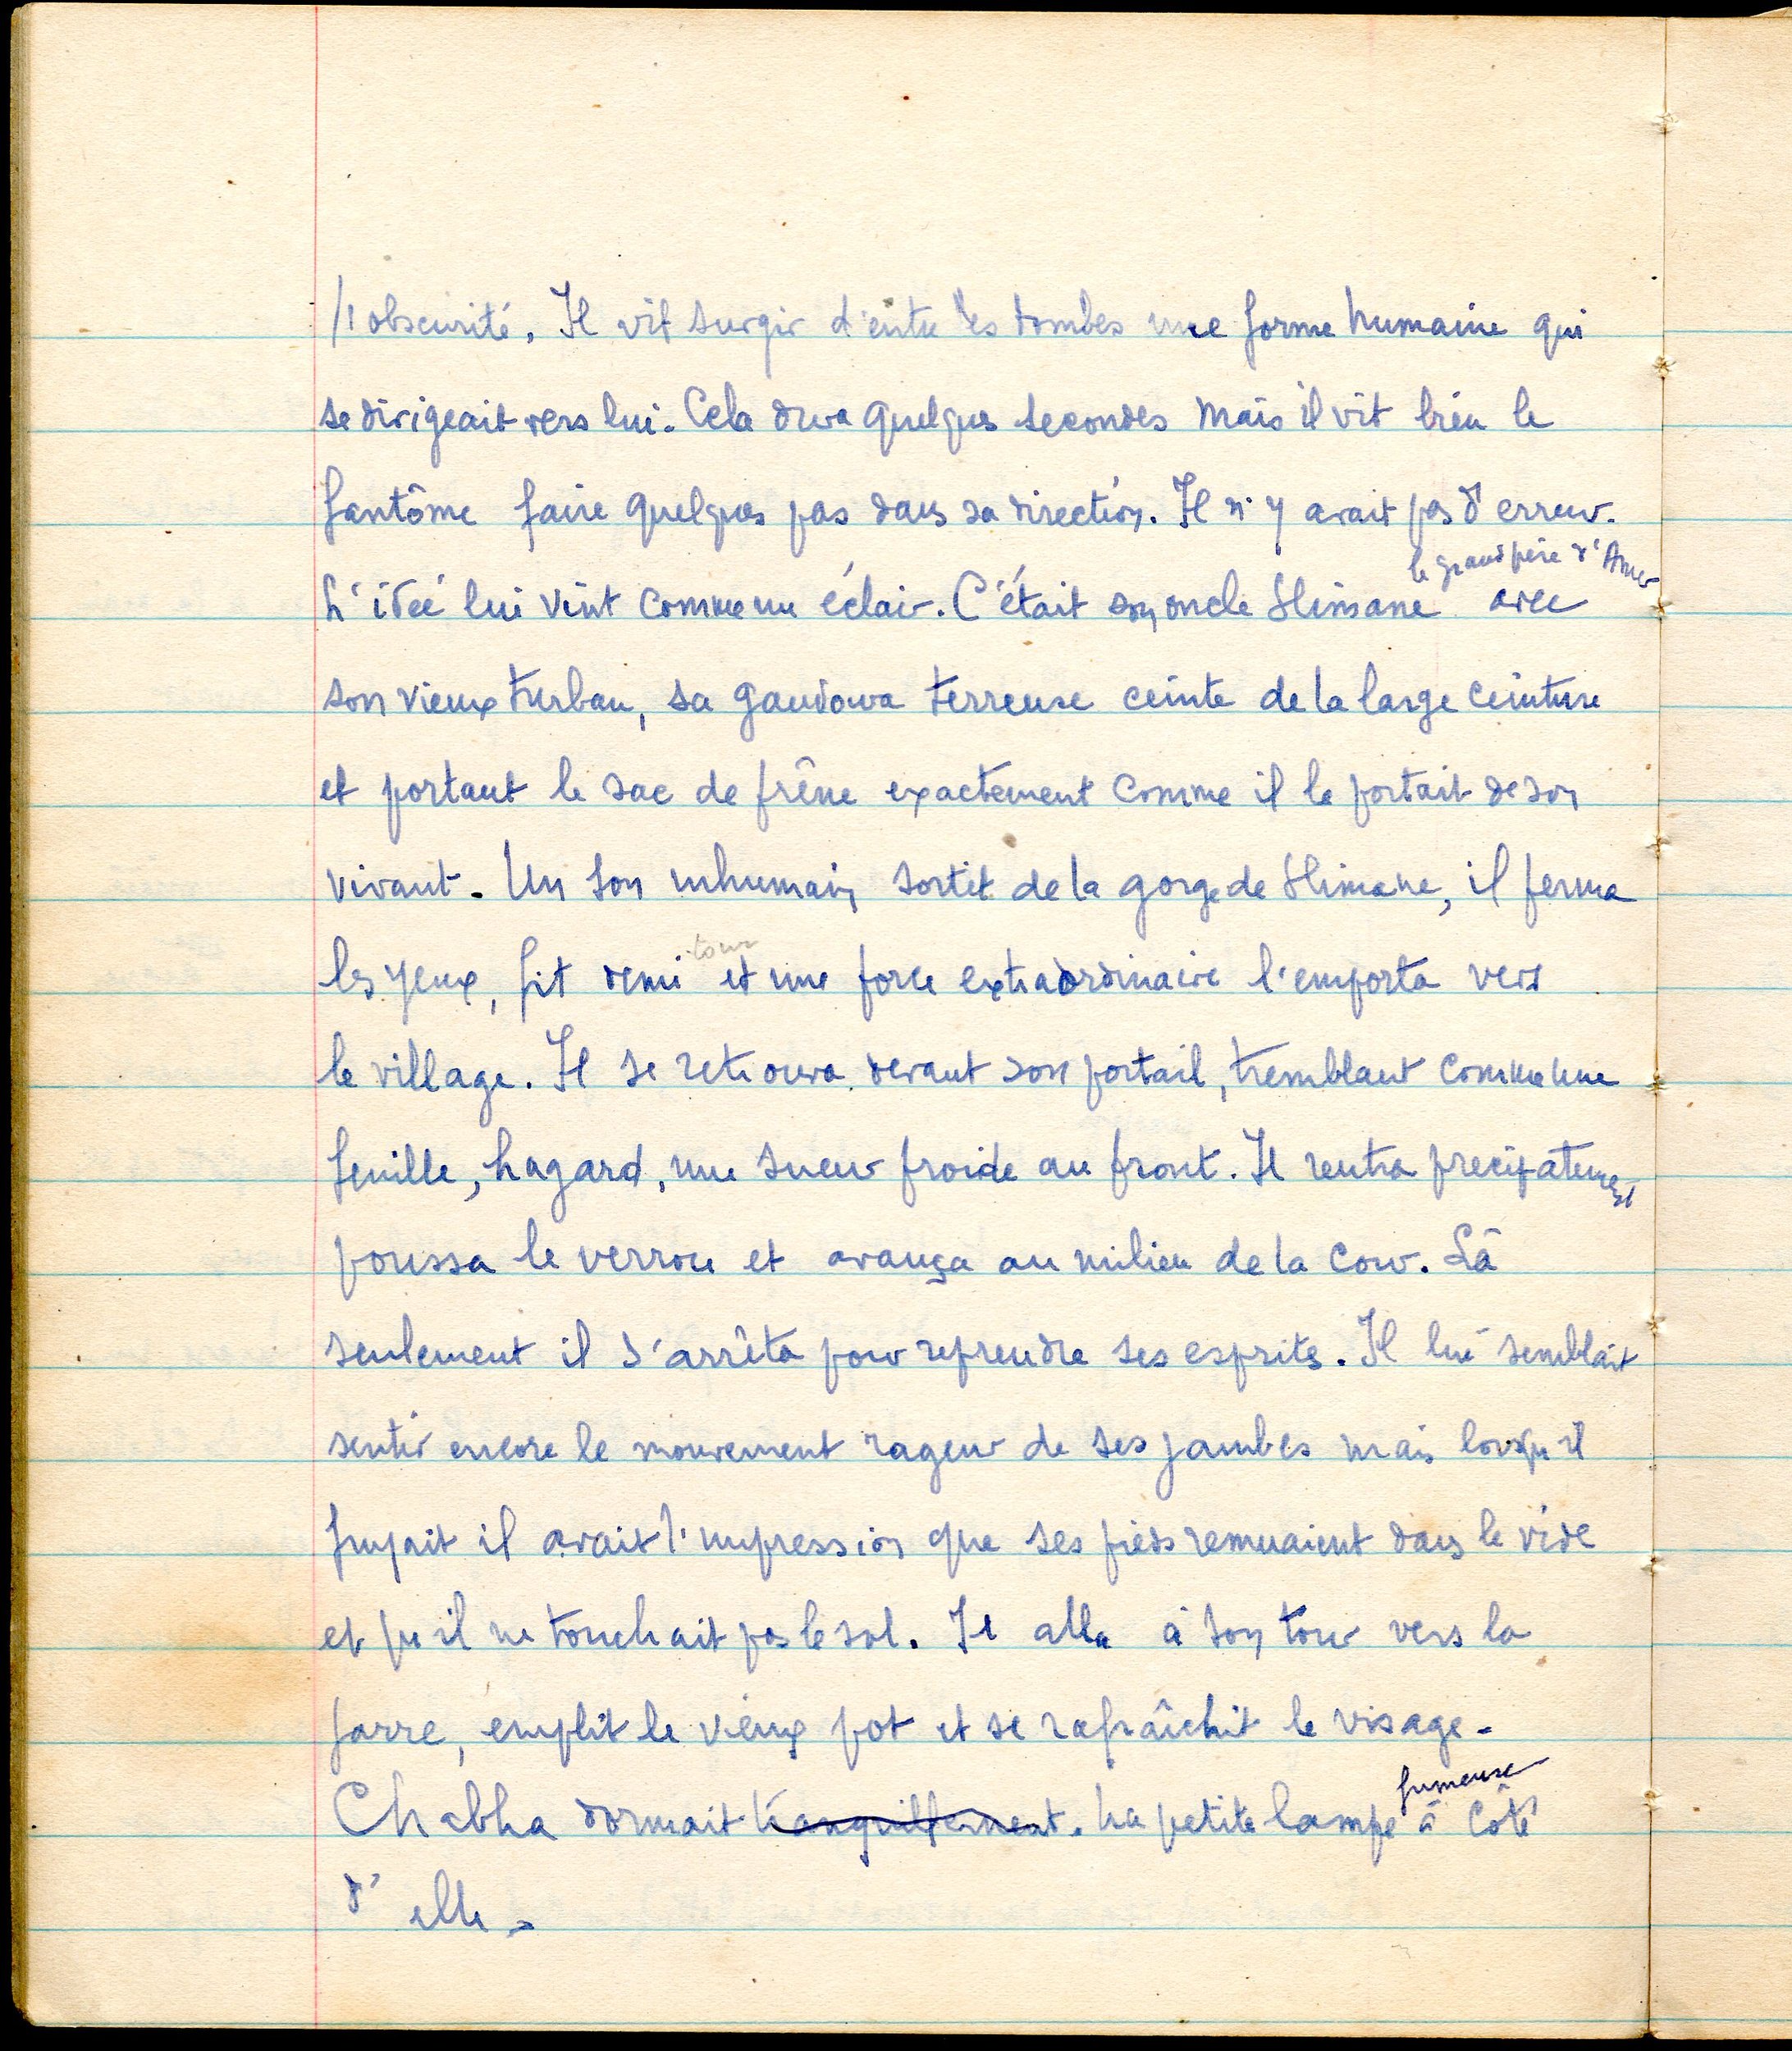 l'obscurité. Il vit surgir d'entre les tombes une forme humaine qui
se dirigeait vers lui. Cela dura quelques secondes mais il vit bien le
fantôme faire quelques pas dans sa direction. Il n'y avait pas d'erreur.
le grand père d'Amer
L'idée lui vint comme un éclair. C'était son oncle Slimane avec
son vieux turban, sa gandoura terreuse ceinte de la large ceinture
et portant le sac de frêne exactement comme il le portait de son
vivant. Un son inhumain sortit de la gorge de Slimane, il ferma
tour
les yeux, fit demi et une force extraordinaire l'emporta vers
le village. Il se retrouva devant son portail, tremblant comme une
feuille, hagard, une sueur froide au front. Il rentra precipatement
poussa le verrou et avança au milieu de la cour. Là
seulement il s'arrêta pour reprendre ses esprits. Il lui semblait
sentir encore le mouvement rageur de ses jambes mais lorsqu'il
fuyait il avait l'impression que ses pieds remuaient dans le vide
et qu'il ne touchait pas le sol. Il alla à son tour vers la
jarre, emplit le vieux pot et se rafraîchit le visage.
fumeuse
Chabha dormait tranquillement. La petite lampe à côté
d'elle.